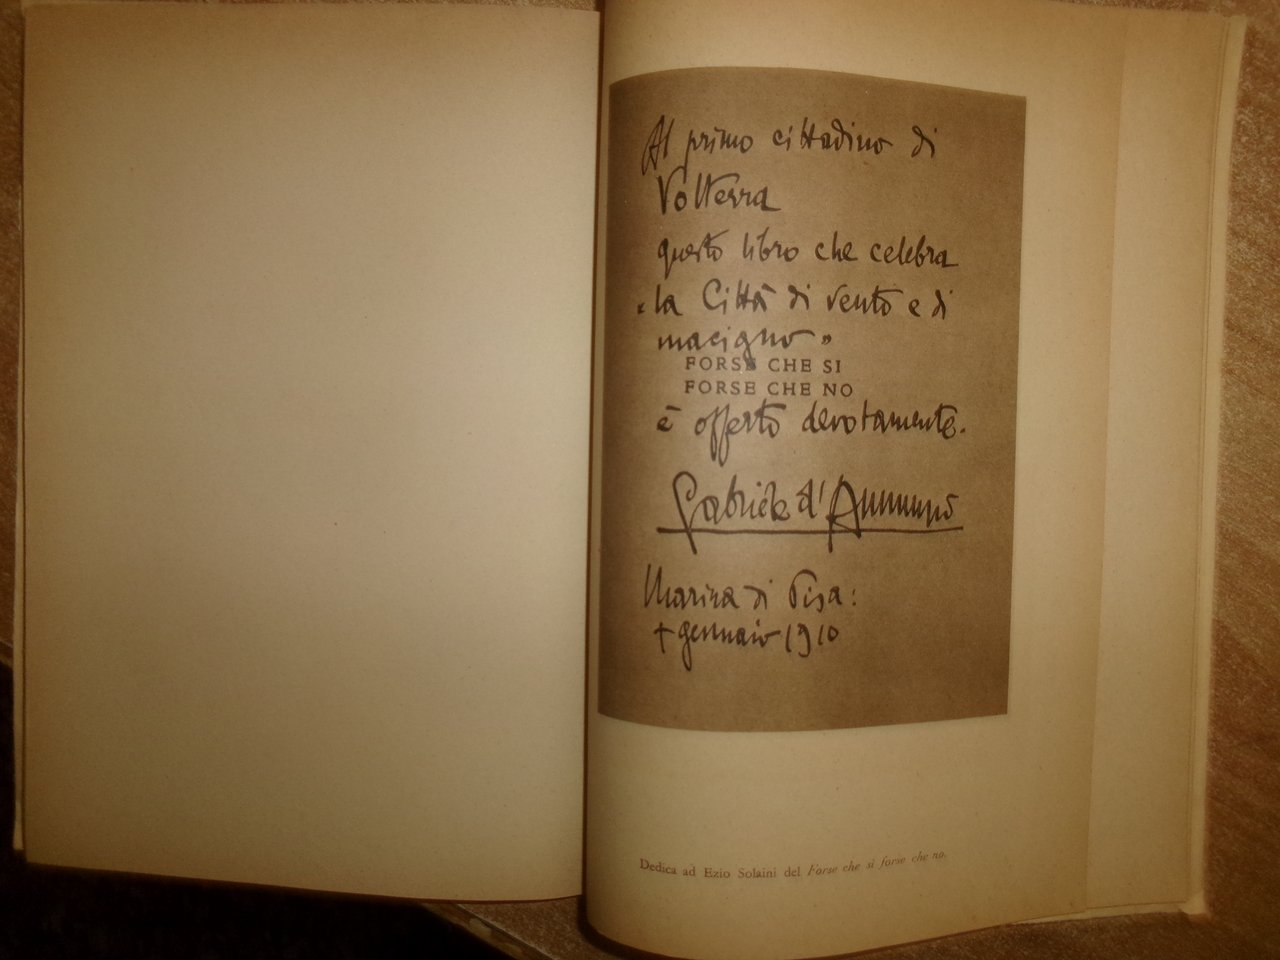 Al primo cittadino di
Volterra
questo libro che celebra
"la Città di vento e di
macigno"
FORSE CHE SI
FORSE CHE NO
è offerto devotamente.
Gabriele d'Annunzio
Marina di Pisa:
gennaio 1910
Dedica ad Ezio Solaini del Forse che si forse che no.